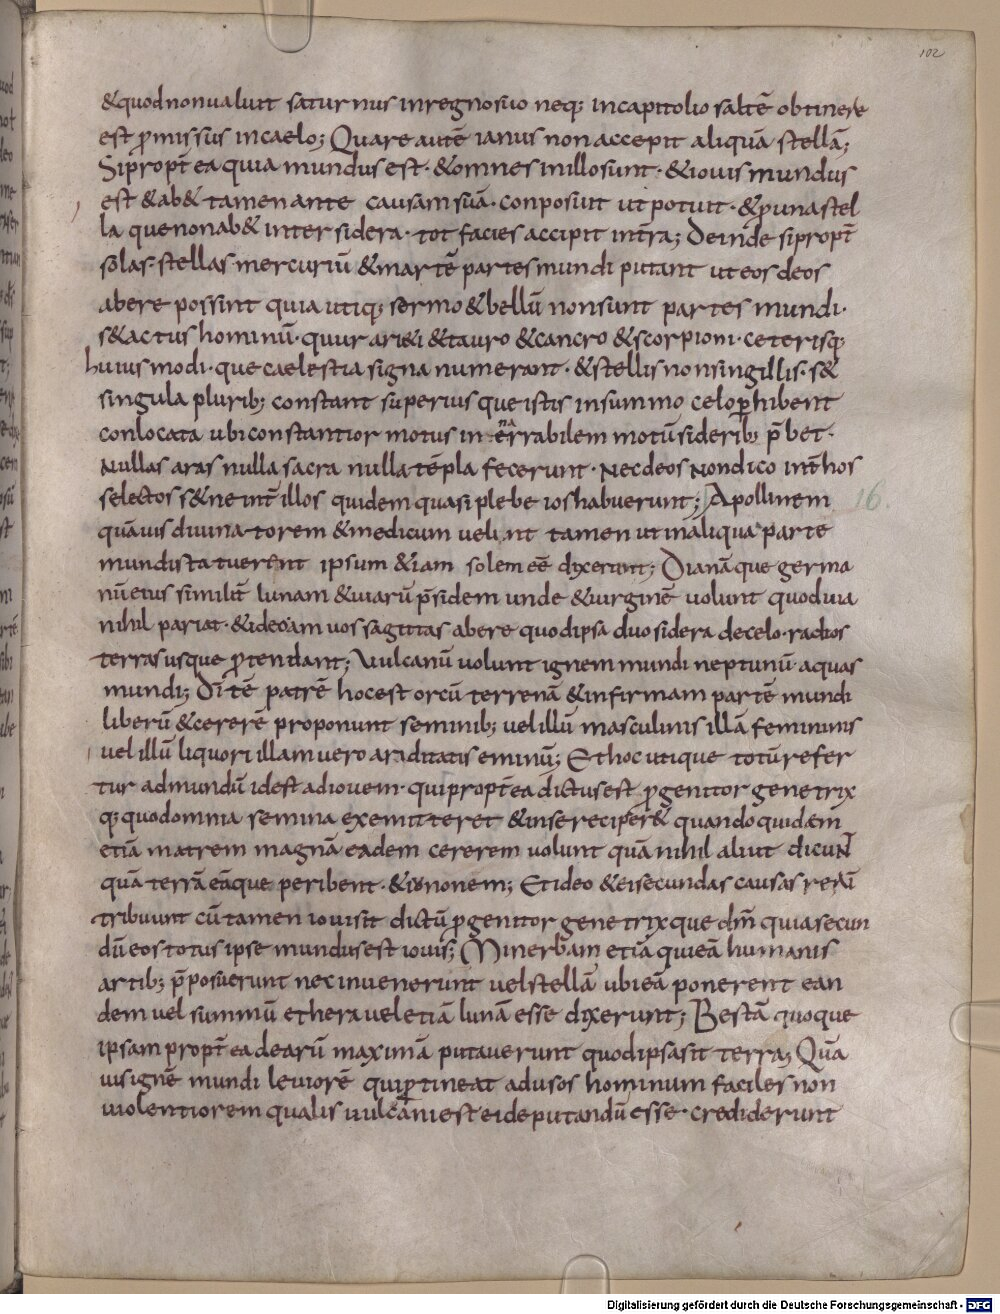 102
&quod non ualuit saturnus in regno suo neq; in capitolio saltē obtinere
est p̄missus in caelo; Quare autē ianus non accepit aliquā stellā;
Si propt̄ ea quia mundus est · & omnes in illo sunt · & iouis mundus
est & ab& tamen ante causam suā · conposuit ut potuit · & p̄ una stel
la que non ab& inter sidera · tot facies accipit int̄ra; Deinde si propt̄
solas stellas mercuriū & martē partes mundi putant ut eos deos
abere possint quia utiq; sermo & bellū non sunt partes mundi ·
s& actus hominū · quur arieti & tauro & cancro & scorpioni · ceterisq;
huius modi · que caelestia signa numerant · & stellis non singillis · s&
singula plurib; constant superius que istis in summo celo p̱hibent
conlocata ubi constantior motus inerrabilem motū siderib; p̄bet ·
Nullas aras nulla sacra nulla tēpla fecerunt · Nec deos Non dico int̄ hos
selectos s& ne int̄ illos quidem quasi plebeios habuerunt; Apollinem 16.
quāuis diuinatorem & medicum uelint tamen ut in aliqua parte
mundi statuerent ipsum & iam solem eē dixerunt; Dianāque germa
nū eius similit̄ lunam & uiarū p̄sidem unde & uirginē uolunt quod uia
nihil pariat · & ideo am uos sagittas abere quod ipsa duo sidera de celo · radios
terras usque p̄tendant; Vulcanū uolunt ignem mundi neptunū aquas
mundi; Ditē patrē hoc est orcū terrenā & infirmam partē mundi
liberū & cererē proponunt seminib; uel illū masculinis illā femininis
uel illū liquori illam uero ariditati seminū; Et hoc utique totū refer
tur ad mundū id est ad iouem · qui propt̄ ea dictus est p̄genitor genetrix
q; quod omnia semina ex se mitteret & in se reciper& quando quidem
etiā matrem magnā eadem cererem uolunt quā nihil aliut dicunt
quā terrā eāque peribent · & iunonem; Et ideo & ei secundas causas rerū
tribuunt cū tamen ioui sit dictū p̄genitor genetrixque dm̄ quia secun
dū eos totus ipse mundus est iouis; Minerbam etiā qui eā humanis
artib; p̄posuerunt nec inuenerunt uel stellā ubi eā ponerent ean
dem uel summū ethera uel etiā lunā esse dixerunt; Bestā quoque
ipsam propt̄ ea dearū maximā putauerunt quod ipsa sit terra; Quā
uis ignē mundi leuiorē qui p̱tineat ad usos hominum faciles non
uiolentiorem qualis uulcani est ei deputandū esse · crediderunt
Digitalisierung gefördert durch die Deutsche Forschungsgemeinschaft - DFG